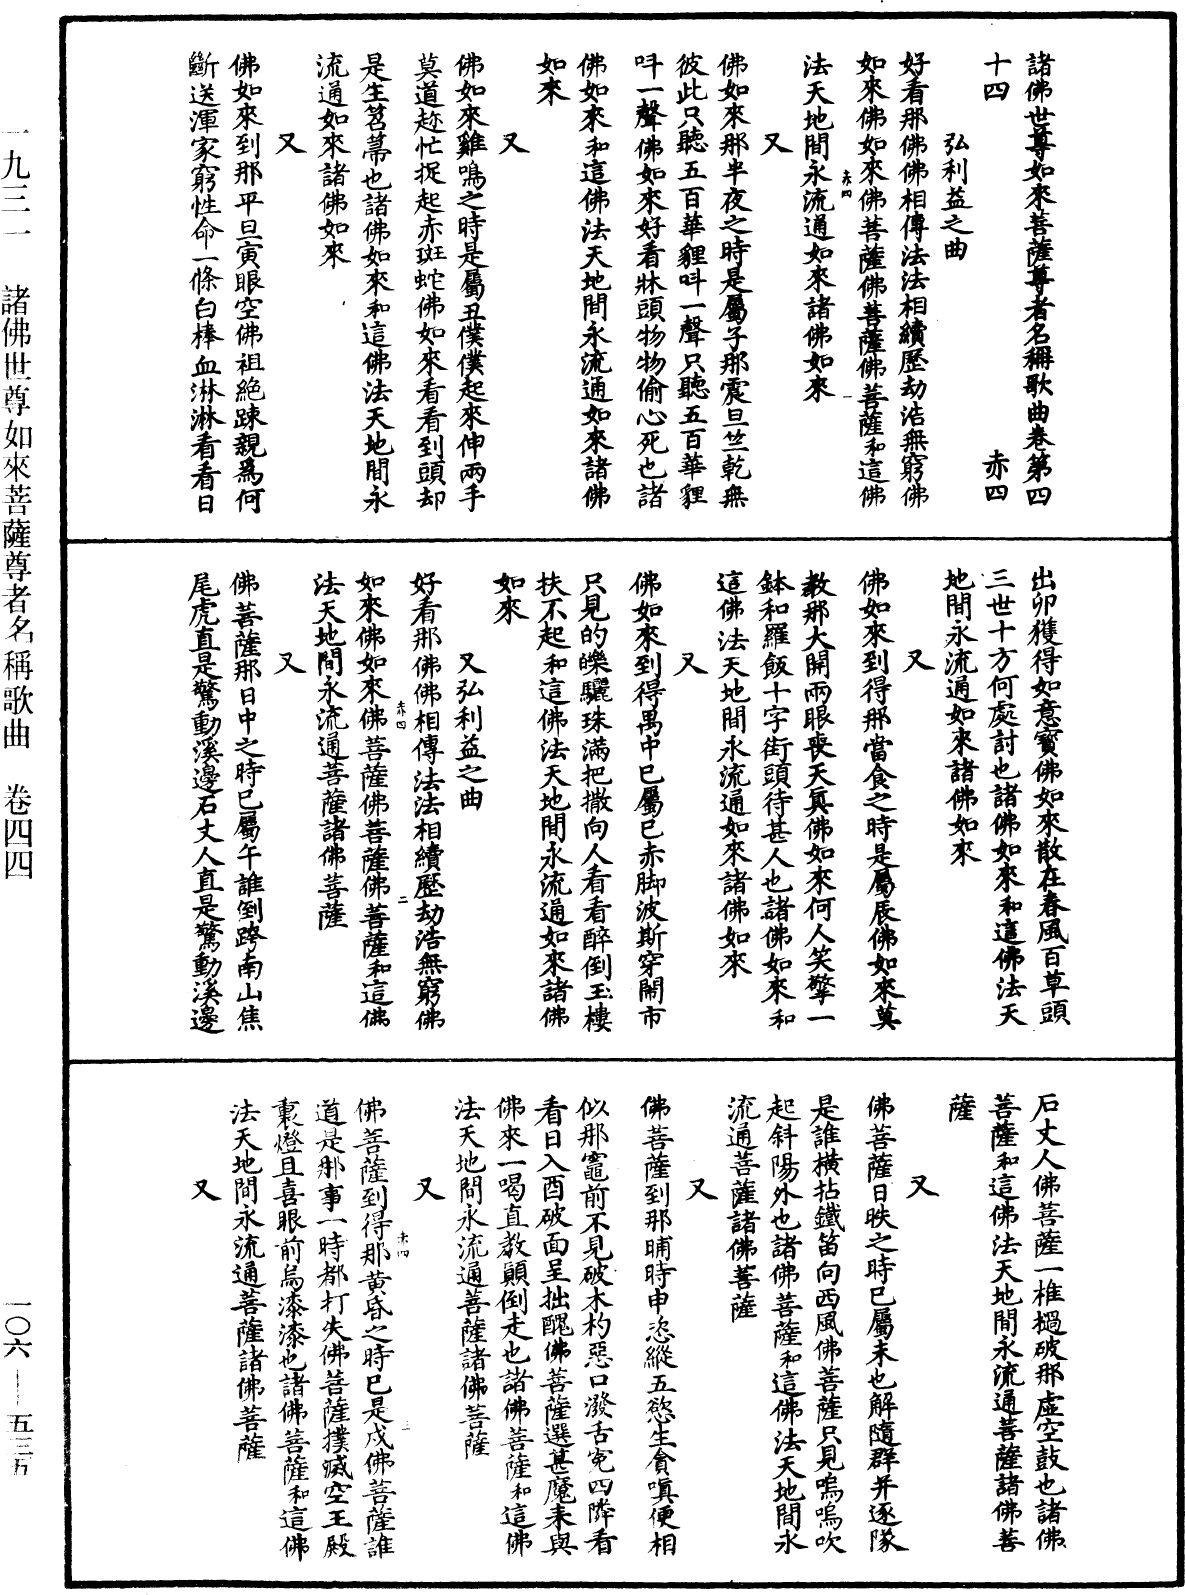 諸佛世尊如來菩薩尊者名稱歌曲卷第四
十四　赤四
弘利益之曲
好看那佛佛相傳法法相續歷劫浩無窮佛
如來佛如來佛菩薩佛菩薩佛菩薩和這佛
法天地間永流通如來諸佛如來
又
佛如來那半夜之時是屬子那震旦竺乾無
彼此只聽五百華貍呌一聲只聽五百華貍
呌一聲佛如來好看牀頭物物偷心死也諸
佛如來和這佛法天地間永流通如來諸佛
如來
又
佛如來雞鳴之時是屬丑僕僕起來伸兩手
莫道趂忙捉起赤斑蛇佛如來看看到頭却
是生笤菷也諸佛如來和這佛法天地間永
流通如來諸佛如來
又
佛如來到那平旦寅眼空佛祖絶踈親爲何
斷送渾家窮性命一條白棒血淋淋看看日
出卯獲得如意寶佛如來散在春風百草頭
三世十方何處討也諸佛如來和這佛法天
地間永流通如來諸佛如來
又
佛如來到得那當食之時是屬辰佛如來莫
教那大開兩眼喪天真佛如來何人笑擎一
鉢和羅飯十字街頭待甚人也諸佛如來和
這佛法天地間永流通如來諸佛如來
又
佛如來到得禺中巳屬巳赤脚波斯穿鬧市
只見的皪驪珠滿把撒向人看看醉倒玉樓
扶不起和這佛法天地間永流通如來諸佛
如來
又弘利益之曲
好看那佛佛相傳法法相續歷劫浩無窮佛
如來佛如來佛菩薩佛菩薩佛菩薩和這佛
法天地間永流通菩薩諸佛菩薩
又
佛菩薩那日中之時巳屬午誰倒跨南山焦
尾虎直是驚動溪邊石丈人直是驚動溪邊
石丈人佛菩薩一椎檛破那虛空鼓也諸佛
菩薩和這佛法天地間永流通菩薩諸佛菩
薩
又
佛菩薩日昳之時巳屬未也解隨群并逐隊
是誰橫拈鐵笛向西風佛菩薩只見嗚嗚吹
起斜陽外也諸佛菩薩和這佛法天地間永
流通菩薩諸佛菩薩
又
佛菩薩到那晡時申恣縱五慾生貪嗔便相
似那竈前不見破木杓惡口潑舌寃四隣看
看日入酉破面呈拙醜佛菩薩選甚魔來與
佛來一喝直教顛倒走也諸佛菩薩和這佛
法天地間永流通菩薩諸佛菩薩
又
佛菩薩到得那黄昏之時巳是戌佛菩薩誰
道是那事一時都打失佛菩薩撲滅空王殿
裏燈且喜眼前烏漆漆也諸佛菩薩和這佛
法天地間永流通菩薩諸佛菩薩
又
赤四　一
赤四　二
赤四　三
一九三一　諸佛世尊如來菩薩尊者名稱歌曲　卷四四
一〇六——五三五